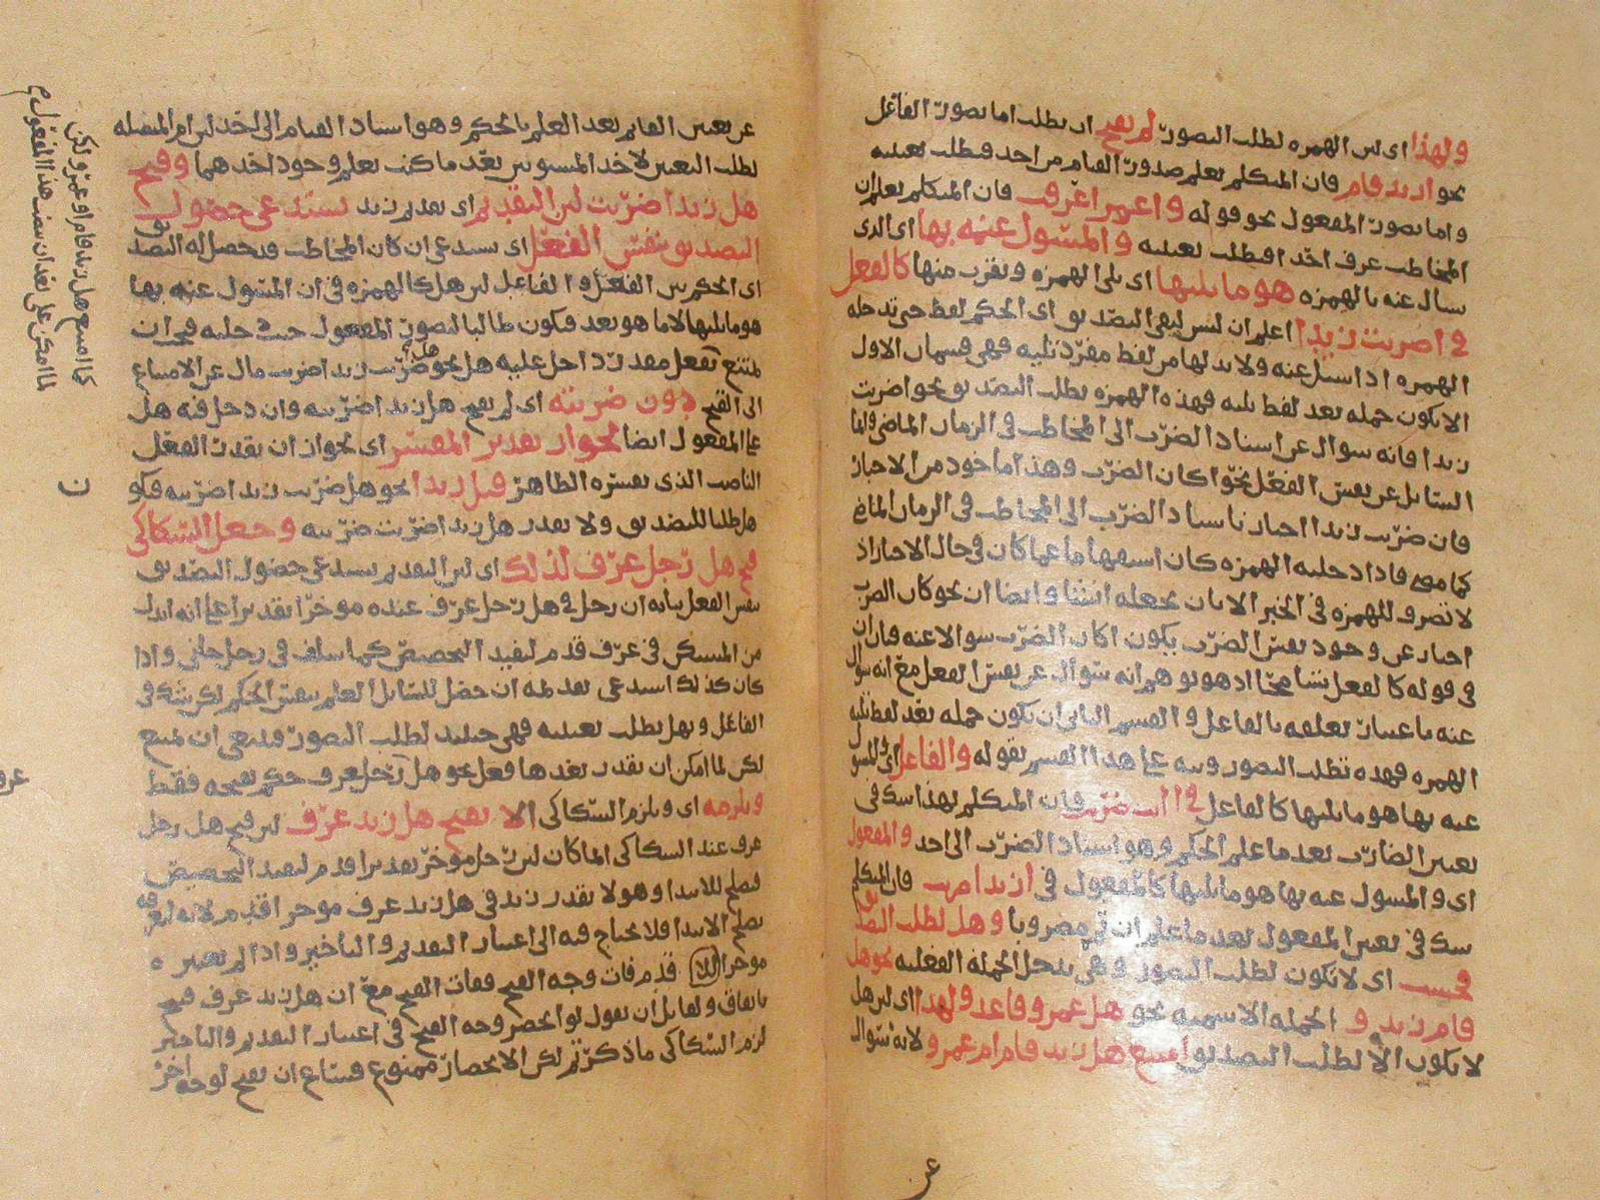 ولهذا اى لان الهمزه لطلب التصور لم يقبح ان يطلب اما تصور الفاعل
نحو ازيد قام فان المتكلم يعلم صدور القيام من احد فيطلب تعيينه
واما تصور المفعول نحو قوله واعمرا عرف فان المتكلم يعلم ان
المخاطب عرف احدا فيطلب تعيينه والمسٔول عنه بها اى الذى
سال عنه بالهمزه هو ما يليها اى يلى الهمزه ويقرب منها كالفعل
فى اضربت زيدا اعلم ان ليس لبقى التصديق اى الحكم لفظ حتى تدخله
الهمزه اذا سئل عنه ولا بد لها من لفظ مفرد تليه فهى قسمان الاول
الا يكون جمله بعد لفظ يليه فهذه الهمزه يطلب التصديق نحو اضربت
زيدا فانه سوال عن اسناد الضرب الى المخاطب فى الزمان الماضى
السائل عن نفس الفعل نحو اكان الضرب وهذا ماخوذ من الاخبار
فان ضربت زيدا اخبار باسناد الضرب الى المخاطب فى الزمان الماضى
كما مضى فاذا دخلته الهمزه كان استفهاما عما كان فى حال الاخبار اذ
لا تصرف للهمزه فى الخبر الا بان يجعله انشا وايضا ان نحو كان الضرب
اخبار عن وجود نفس الضرب يكون اكان الضرب سوالا عنه فان ان
فى قوله كالفعل تسامحا اذ هو يوهم انه سوال عن نفس الفعل مع انه سوال
عنه باعتبار تعلقه بالفاعل والقسم الثانى ان يكون جمله بعد لفظ يليه
الهمزه فهذه تطلب التصور ونبه على هذا القسم بقوله والفاعل اى والمسو
عنه بها هو ما يليها كالفاعل فى اانت ضربت فان المتكلم بهذا شك فى
تعيين الضارب بعد ما علم الحكم وهو اسناد الضرب الى احد والمفعول
اى والمسول عنه بها هو ما يليها كالمفعول فى ازيدا ضربت فان المتكلم
شك فى تعيين المفعول بعد ما علم ان مضروبا وهل لطلب التصديق
فحسب اى لا تكون لطلب التصور وهى يدخل الجمله الفعليه نحو هل
قام زيد و الجمله الاسميه نحو هل عمرو قاعد ولهذا اى لان هل
لا يكون الا لطلب التصديق امتنع هل زيد قام ام عمرو لانه سوال
عن
عن تعيين القائم بعد العلم بالحكم وهو اسناد القيام الى احد لان ام المتصله
لطلب التعيين لاحد المستويين بعد ما كنت تعلم وجود احدهما وقبح
هل زيدا ضربت لان التقديم اى تقديم زيد يستدعى حصول
التصديق بنفس الفعل اى يستدعى ان كان المخاطب قد حصل له التصديق
اى الحكم بين الفعل والفاعل لان هل كالهمزه فى ان المسٔول عنه بها
هو ما يليها لا ما هو بعد فيكون طالبا لتصور المفعول
ممتنع بفعل مقدر داخل عليه هل نحو هل ضربت زيدا ضربت مال عن الامتناع
الى القبح دون ضربته اى لم يقبح هل زيدا ضربته وان دخل فيه هل
على المفعول ايضا لجواز تقدير المفسر اى لجواز ان يقدر الفعل
الناصب الذى يفسره الظاهر قبل زيدا نحو هل ضربت زيدا ضربته فيكو
هل طلبا للتصديق ولا يقدر هل زيدا ضربت ضربته وجعل السكاكى
قبح هل رجل عرف لذلك اى لان التقديم يستدعى حصول التصديق
بنفس الفعل بيانه ان رجل فى هل رجل عرف عنده موخر تقديرا على انه ابدل
من المستكن فى عرف قدم ليفيد التخصيص كما سلف فى رجل جانى واذا
كان كذلك استدعى تقديمه ان حصل للسائل العلم بنفس الحكم لكن شك فى
الفاعل وبهل يطلب تعيينه فهى حينئذ لطلب التصور فينبغى ان يمتنع
لكن لما امكن ان يقدر بعدها فعل نحو هل رجل عرف حكم بقبحه فقط
ويلزمه اى ويلزم السكاكى الا يقبح هل زيد عرف لان قبح هل رجل
عرف عند السكاكى لما كان لان رجل موخر تقديرا قدم ليفيد التخصيص
فيصلح للابتدا وهو لا يقدر زيد فى هل زيد عرف موخرا قدم لانه معرفه
يصلح الابتدا فلا يحتاج فيه الى اعتبار التقديم والتاخير واذا لم يعتبره
موخرا قدم فات وجه القبح ففات القبح مع ان هل زيد عرف قبيح
باتفاق ولقائل ان يقول لو انحصر وجه القبح فى اعتبار التقديم والتاخير
لزم السكاكى ما ذكرتم لكن الانحصار ممنوع فيشاع ان يقبح لوجه اخر
كما امتنع هل زيد قام او عمرو لكن